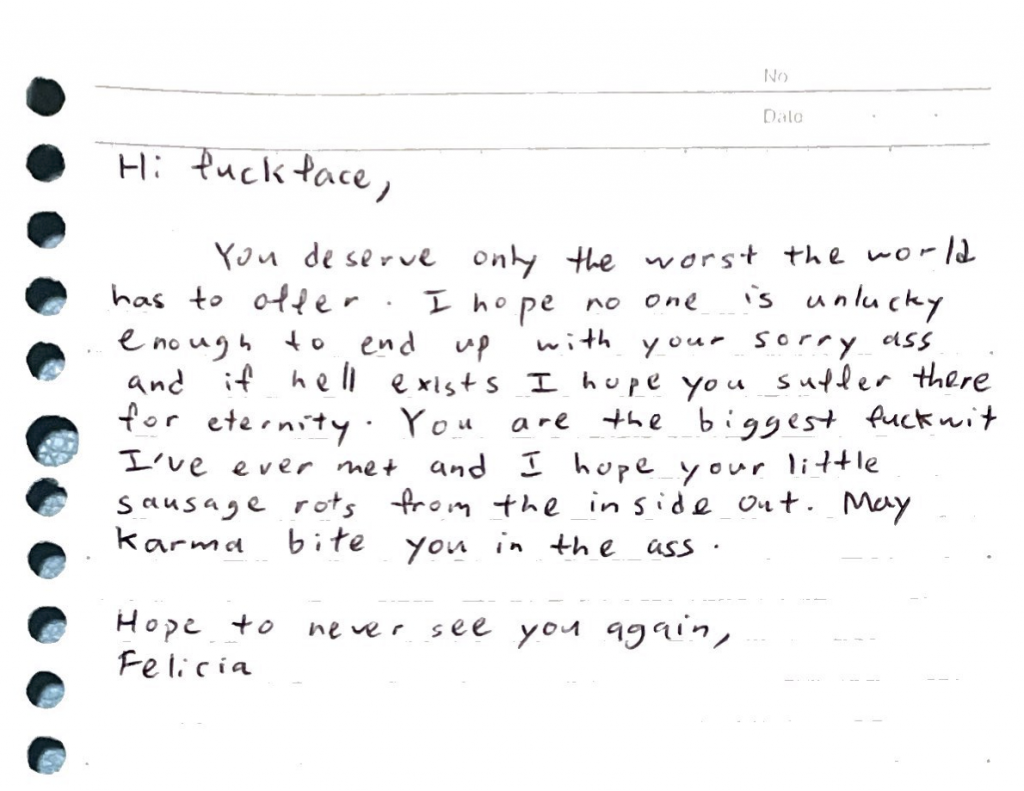 No
Date
Hi fuckface,
You deserve only the worst the world
has to offer. I hope no one is unlucky
enough to end up with your sorry ass
and if hell exists I hope you suffer there
for eternity. You are the biggest fuckwit
I've ever met and I hope your little
sausage rots from the inside out. May
karma bite you in the ass.
Hope to never see you again,
Felicia